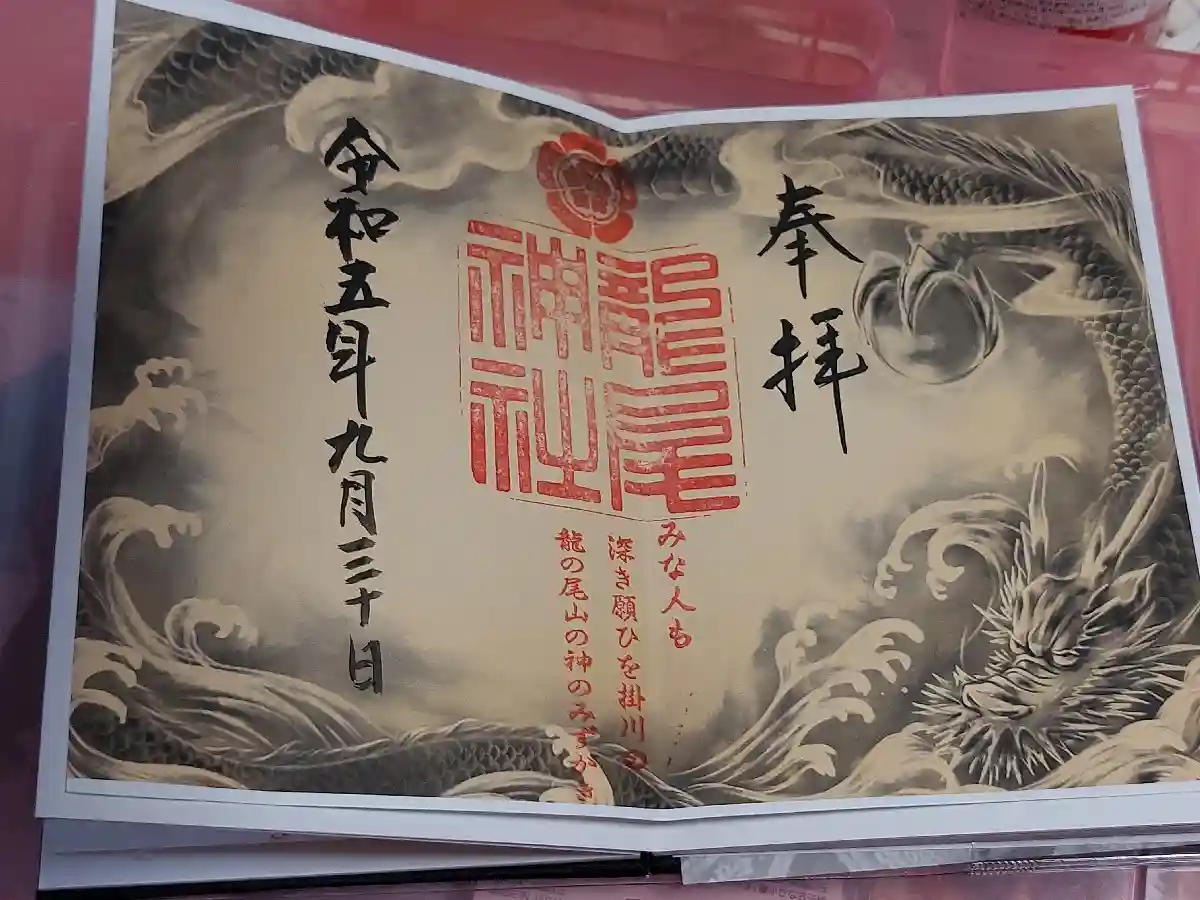 奉拝
龍尾
神社
みな人も
深き願ひを掛川の
龍の尾山の神のみずがき
令和五年九月三十日